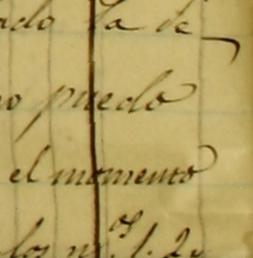 la de
puedo
el momento
los n.os 1. 2.